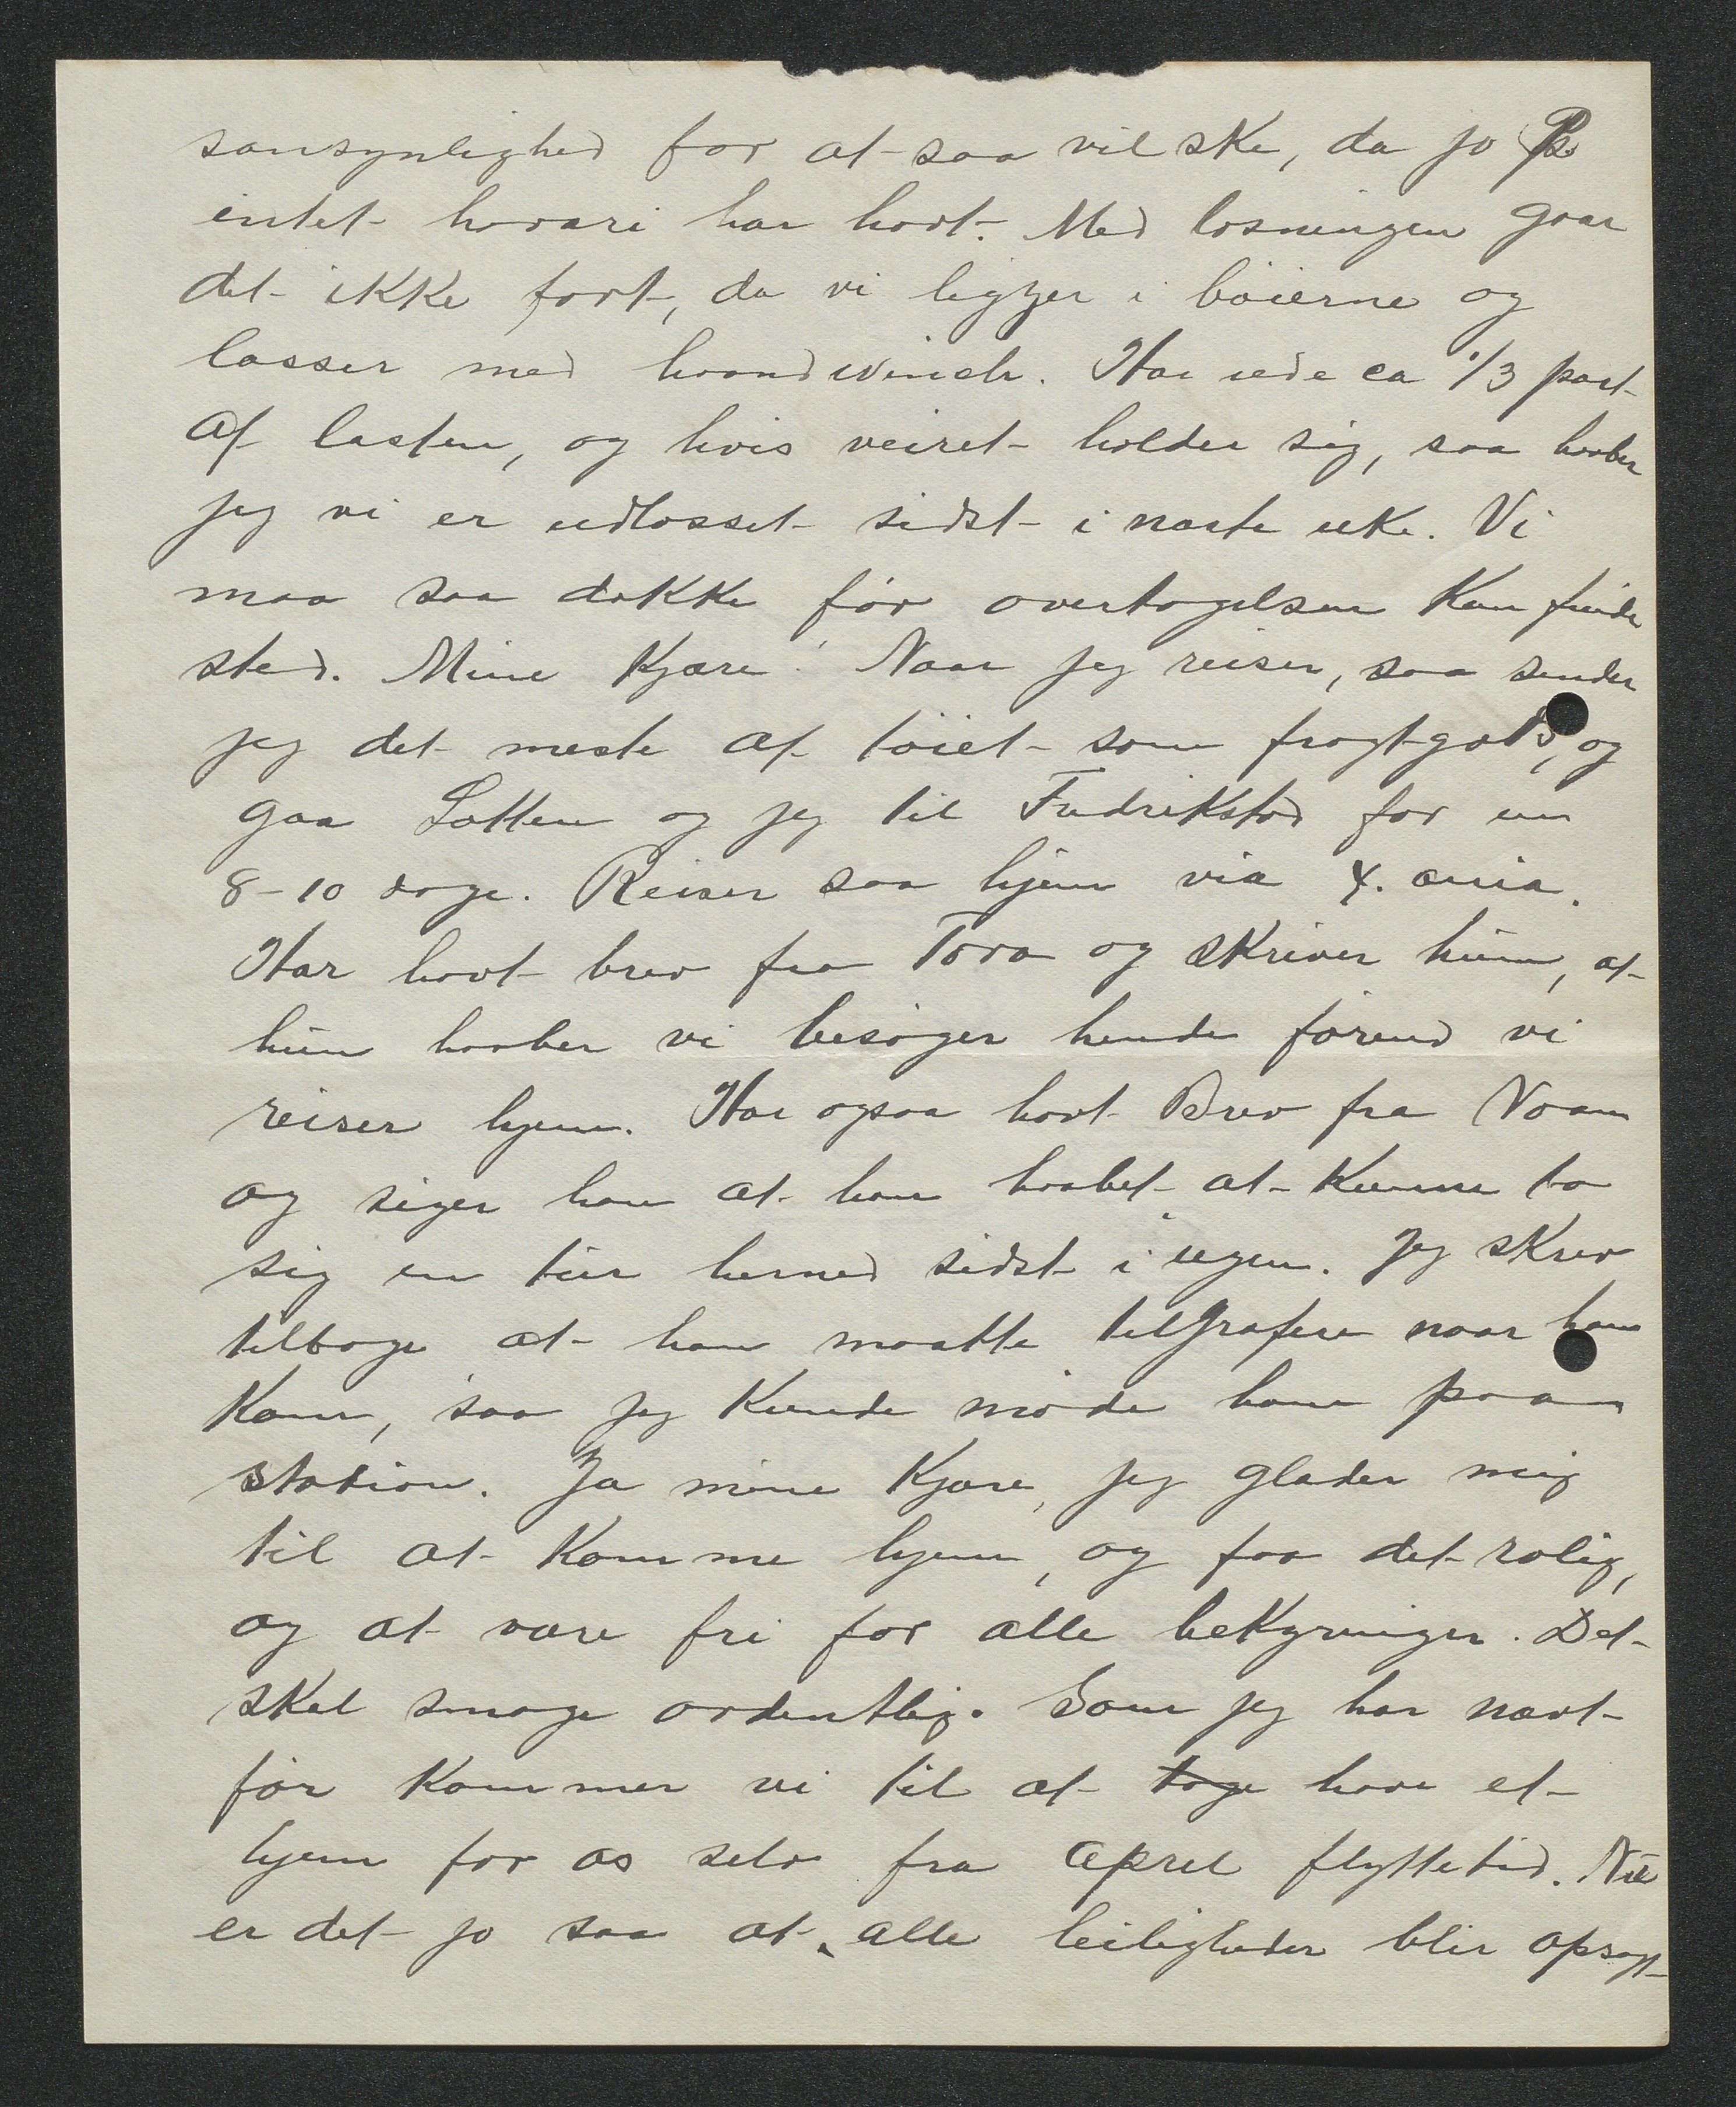 sansynlighed for at saa vil ske, da jo
intet havari har havt. Med losningen gaar
det ikke fort, da vi ligger i bøierne og
losser med haandwinch. Har ude ca 1/3 part
af lasten, og hvis veiret holder sig, saa haaber
jeg vi er udlosset sidst i næste uke. Vi
maa saa dokke før overtagelsen kan finde
sted. Mine Kjære! Naar jeg reiser, saa sender
jeg det meste af tøiet som fragtgods, og
gaa Lotten og jeg til Fredrikstad for en
8-10 dage. Reiser saa hjem via X.ania.
Har havt brev fra Tora og skriver hun, at
hun haaber vi besøger hende førend vi
reiser hjem. Har ogsaa havt Brev fra
og siger han at han haabet at kunne ta
sig en tur herned sidst i ugen. Jeg skrev
tilbage at han maatte telgrafere naar han
kom, saa jeg kunde møde ham paa
station. Ja mine Kjære, jeg glæder mig
til at komme hjem, og faa det rolig,
og at være fri for alle bekyringer. Det
skal smage ordentlig. Som jeg har nævt
før kommer vi til at tage have et
hjem for os selv fra April flyttetid. Nu
er det jo saa at alle leiligheder blir opsagt